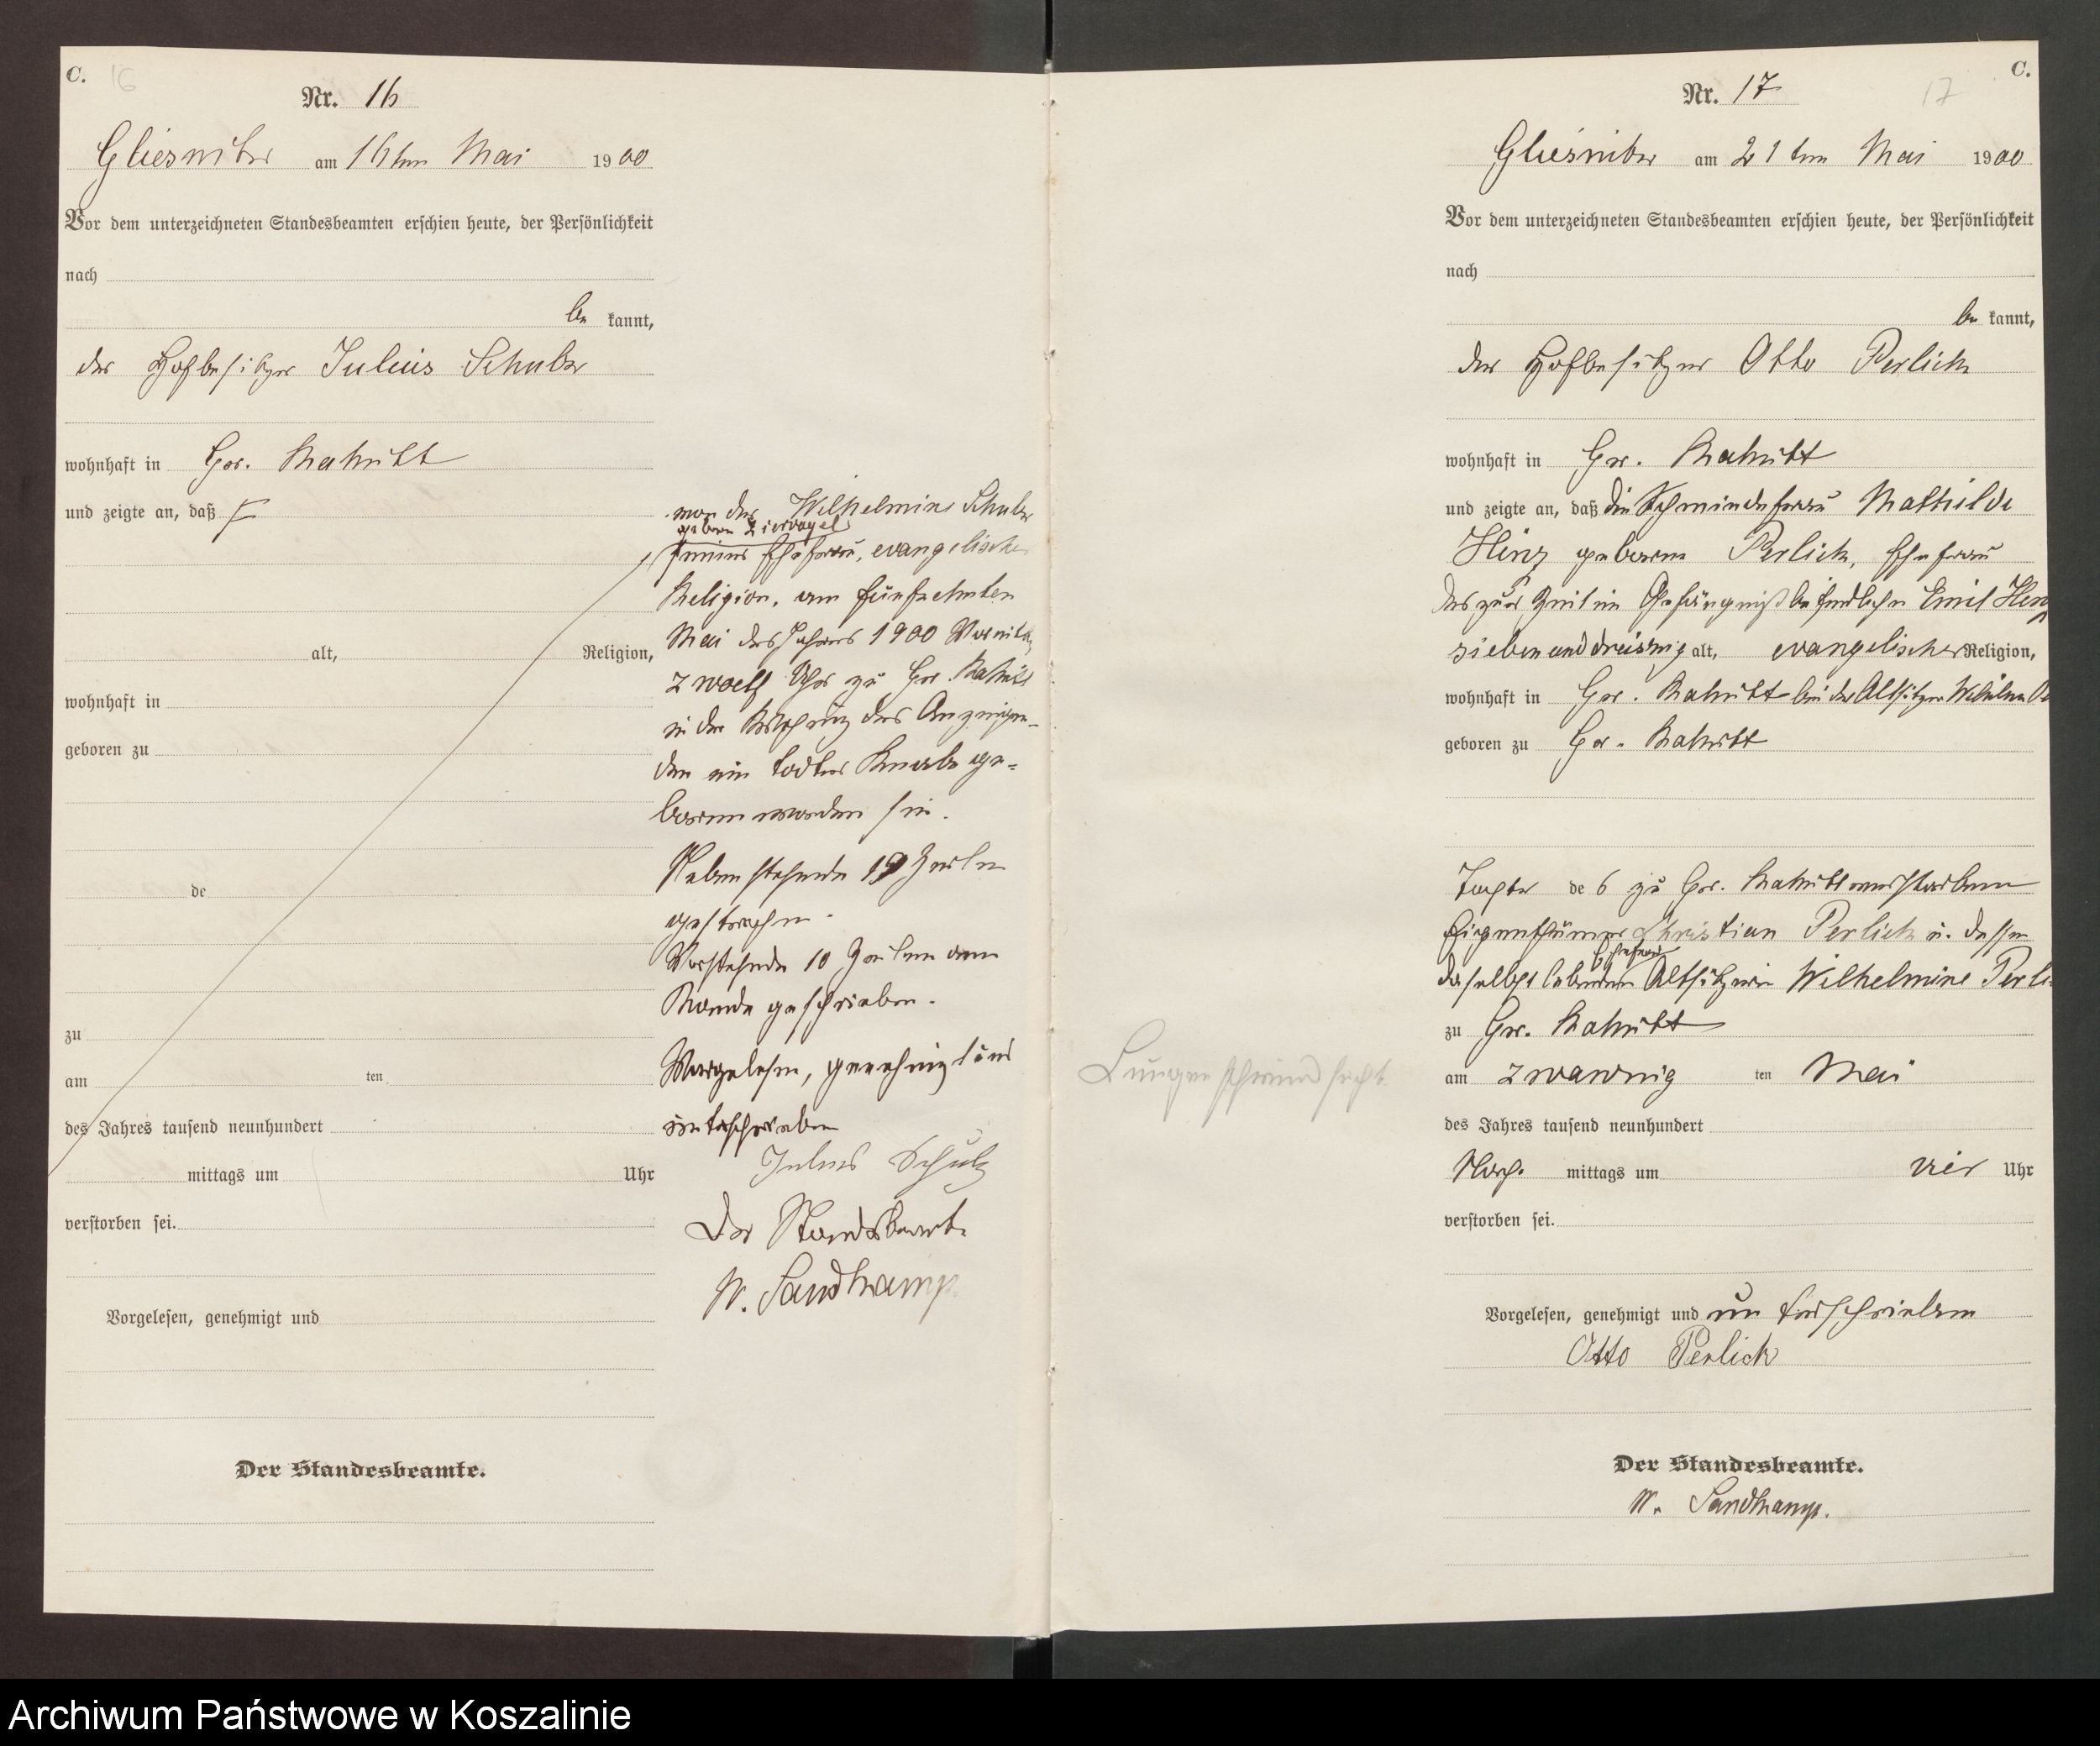 C. 16
Nr. 16
Gliesnitz am 16ten Mai 1900
Vor dem unterzeichneten Standesbeamten erschien heute, der Persönlichkeit
nach
be kannt,
der Hofbesitzer Julius Schulz
wohnhaft in Gr. Rakitt
und zeigte an, daß
alt, Religion,
wohnhaft in
geboren zu
de
zu
am ten
des Jahres tausend neunhundert
mittags um Uhr
verstorben sei.
Vorgelesen, genehmigt und
Der Standesbeamte.
von der Wilhelmine Schulz
geborn Ziervogel
seiner Ehefrau, evangelischer
Religion, am fünfzehnten
Mai des Jahres 1900 Vormittags
zwoelf Uhr zu Gr. Rakitt
in der Wohnung des Anzeigen-
den ein todter Knabe ge-
boren worden sei.
Nebenstehende 19 Zeilen
gestrichen.
Vorstehende 10 Zeilen am
Rande geschrieben.
Vorgelesen, genehmigt und
unterschrieben
Julius Schulz
Der Standesbeamte
W. Sandkamp.
C.
17
Nr. 17
Gliesnitz am 21ten Mai 1900
Vor dem unterzeichneten Standesbeamten erschien heute, der Persönlichkeit
nach
be kannt,
der Hofbesitzer Otto Perlick
wohnhaft in Gr. Rakitt
und zeigte an, daß die Schmiedefrau Mathilde
Hinz geborne Perlick, Ehefrau
des zur Zeit im Gefängniß befindlichen Emil Hinz
siebenunddreissig alt, evangelischer Religion,
wohnhaft in Gr. Rakitt bei der Altsitzer
geboren zu Gr. Rakitt
Tochter des zu Gr. Rakitt verstorbenen
Eigenthümer Christian Perlick u. dessen
Ehefrau
daselbst lebenden Altsitzerin Wilhelmine Perlick
zu Gr. Rakitt
am zwanzig ten Mai
des Jahres tausend neunhundert
Nach mittags um vier Uhr
verstorben sei.
Lungenschwindsucht
Vorgelesen, genehmigt und unterschrieben
Otto Perlick
Der Standesbeamte.
W. Sandkamp.
Archiwum Państwowe w Koszalinie